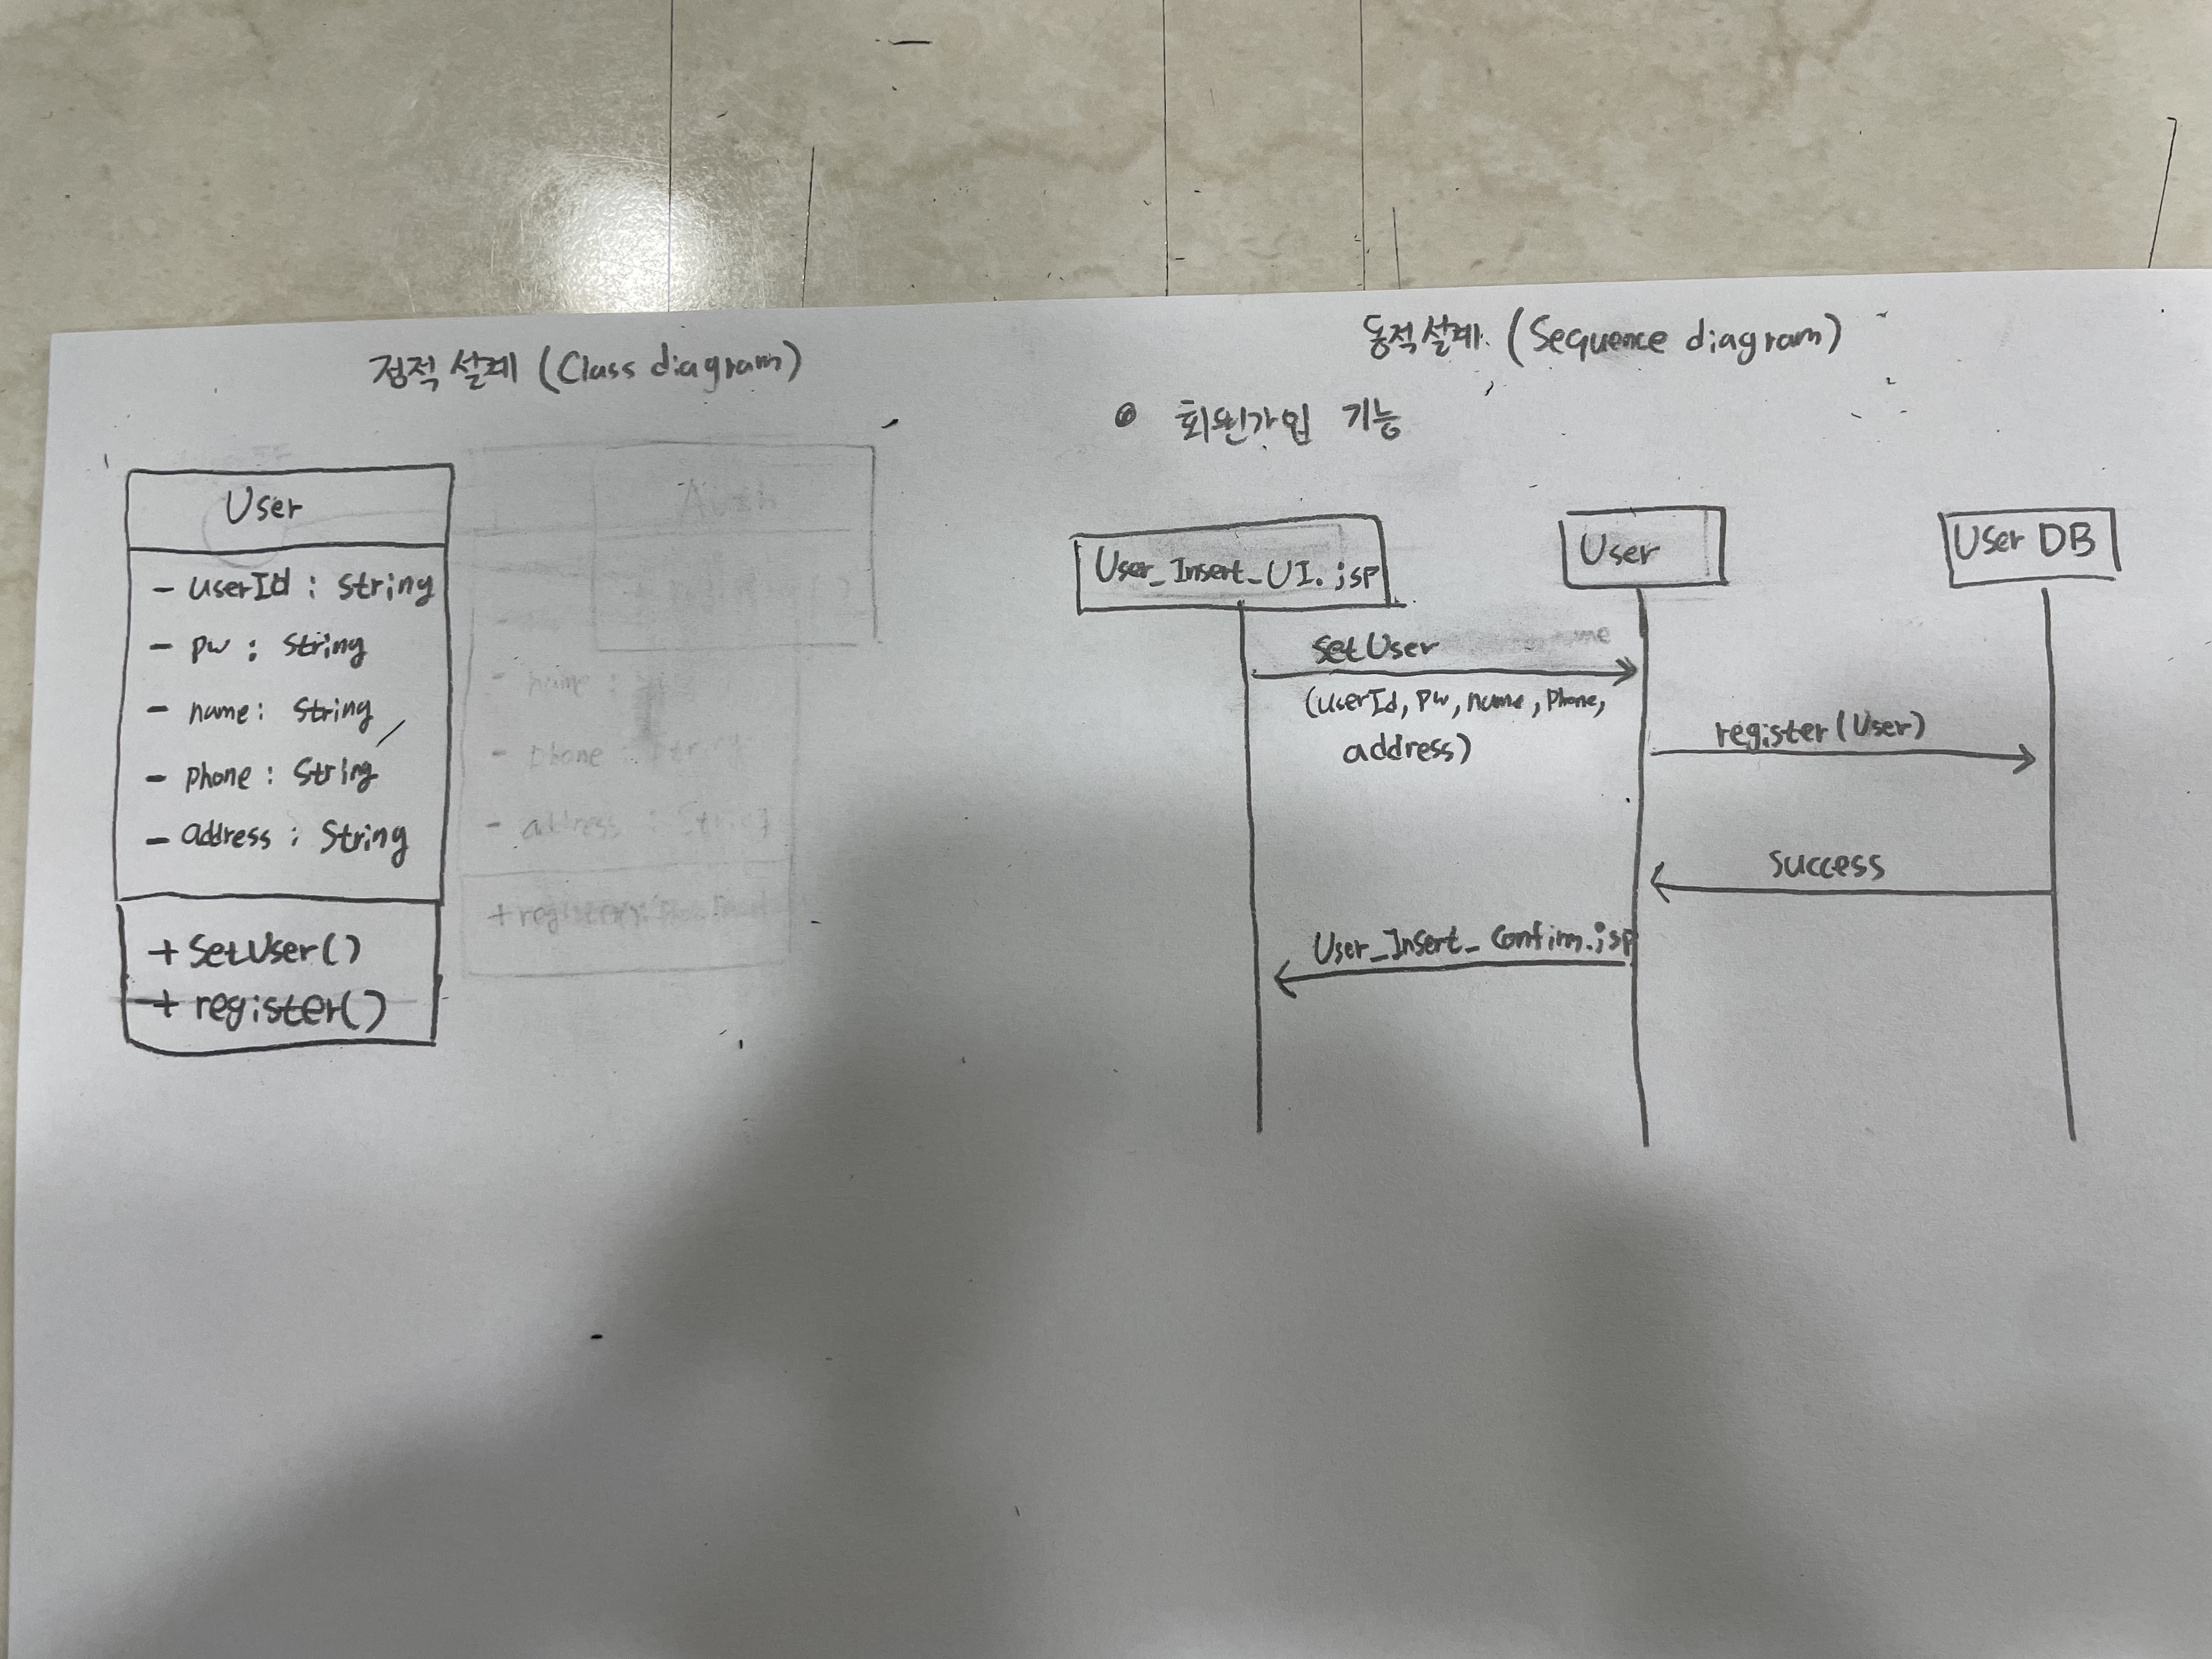 정적 설계 (Class diagram)
User
- userId : string
- pw : string
- name : string
- phone : string
- address : String
+ SetUser()
+ register()
Auth
- name :
- phone : String
- address : String
동적설계 (Sequence diagram)
회원가입 기능
User_Insert_UI.jsp
User
User DB
setUser
(userId, pw, name, phone,
address)
register(User)
success
User_Insert_Confirm.jsp